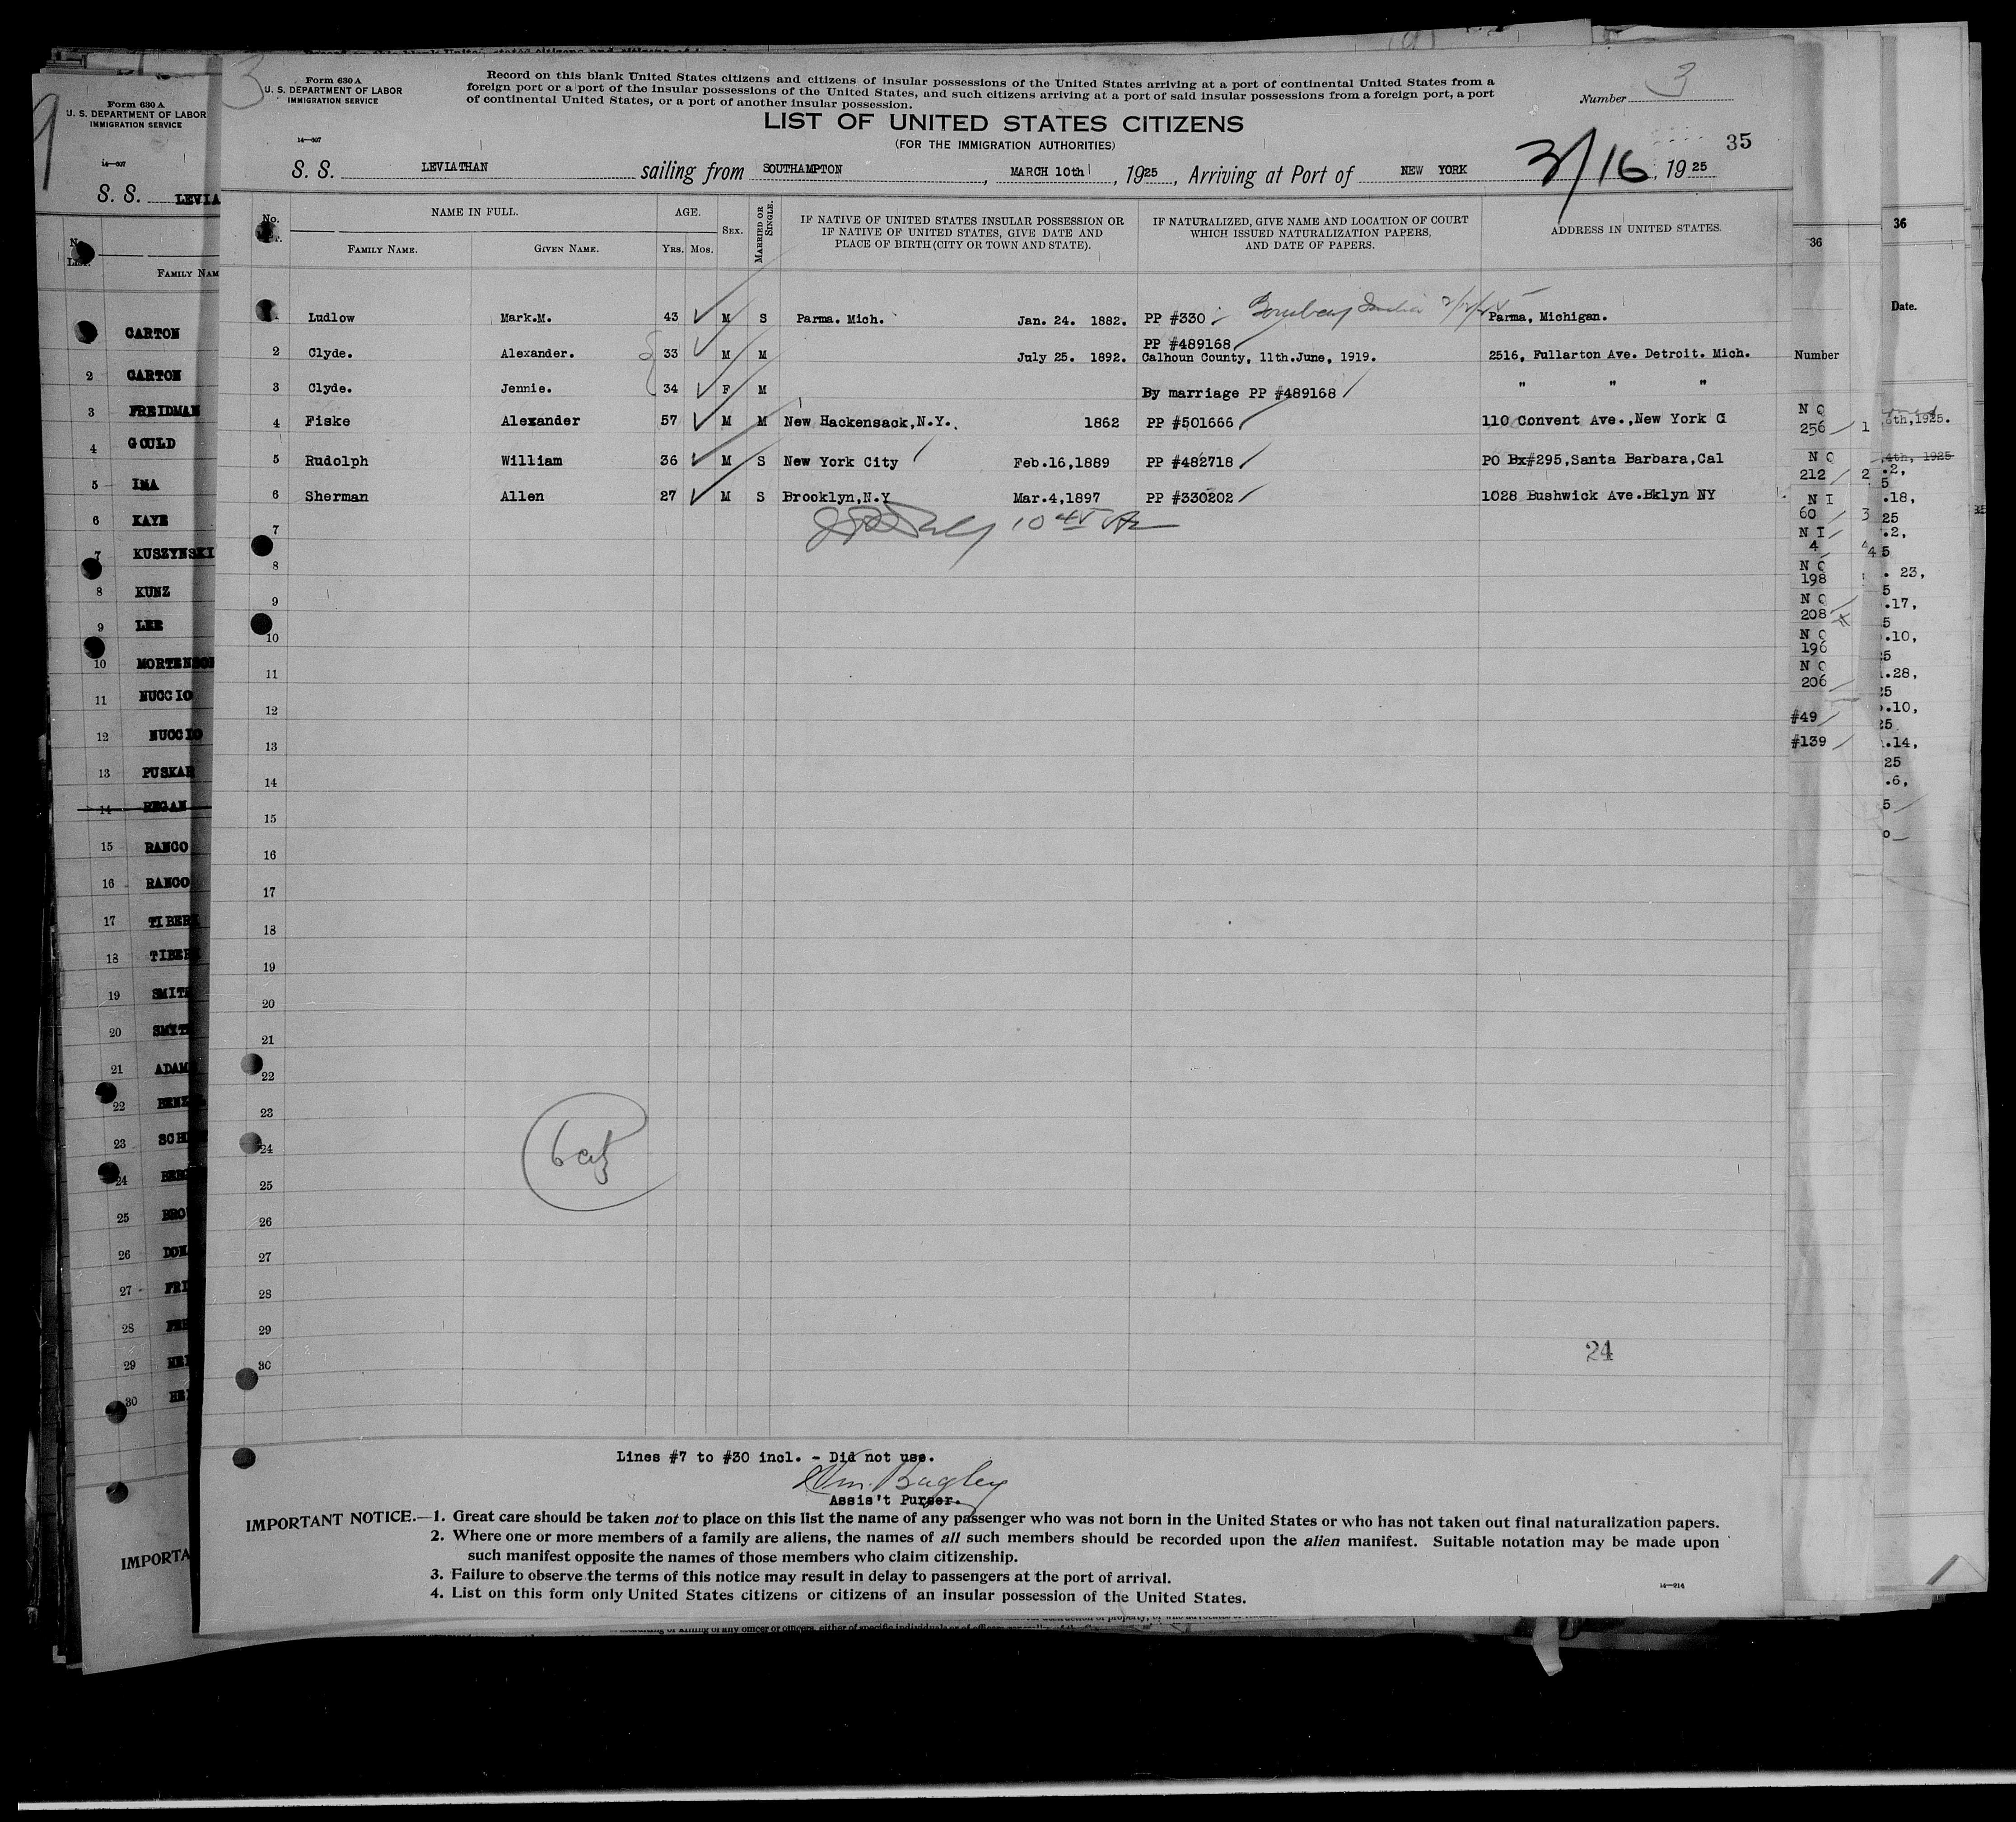 Form 630 A
U. S. DEPARTMENT OF LABOR
IMMIGRATION SERVICE
14—607
Record on this blank United States citizens and citizens of insular possessions of the United States arriving at a port of continental United States from a
foreign port or a port of the insular possessions of the United States, and such citizens arriving at a port of said insular possessions from a foreign port, a port
of continental United States, or a port of another insular possession.
Number 3
3
35
LIST OF UNITED STATES CITIZENS
(FOR THE IMMIGRATION AUTHORITIES)
S. S. LEVIATHAN sailing from SOUTHAMPTON, MARCH 10th, 1925, Arriving at Port of NEW YORK 3/16, 1925
No. NAME IN FULL. AGE. SEX. MARRIED OR SINGLE.
FAMILY NAME. GIVEN NAME. YRS. MOS.
IF NATIVE OF UNITED STATES INSULAR POSSESSION OR
IF NATIVE OF UNITED STATES, GIVE DATE AND
PLACE OF BIRTH (CITY OR TOWN AND STATE).
IF NATURALIZED, GIVE NAME AND LOCATION OF COURT
WHICH ISSUED NATURALIZATION PAPERS,
AND DATE OF PAPERS.
ADDRESS IN UNITED STATES.
Ludlow Mark.M. 43 M S Parma. Mich. Jan. 24. 1882. PP #330 Bombay India Parma, Michigan.
PP #489168
2 Clyde. Alexander. 33 M M July 25. 1892. Calhoun County, 11th.June, 1919. 2516, Fullarton Ave. Detroit. Mich.
3 Clyde. Jennie. 34 F M By marriage PP #489168 " " "
4 Fiske Alexander 57 M M New Hackensack,N.Y. 1862 PP #501666 110 Convent Ave.,New York C
5 Rudolph William 36 M S New York City Feb.16,1889 PP #482718 PO Bx#295,Santa Barbara,Cal
6 Sherman Allen 27 M S Brooklyn,N.Y Mar.4,1897 PP #330202 1028 Bushwick Ave.Bklyn NY
7
8
9
10
11
12
13
14
15
16
17
18
19
20
21
22
23
24
25
26
27
28
29
30
24
Lines #7 to #30 incl. - Did not use.
Wm. Bagley
Assis't Purser.
IMPORTANT NOTICE.—1. Great care should be taken not to place on this list the name of any passenger who was not born in the United States or who has not taken out final naturalization papers.
2. Where one or more members of a family are aliens, the names of all such members should be recorded upon the alien manifest. Suitable notation may be made upon
such manifest opposite the names of those members who claim citizenship.
3. Failure to observe the terms of this notice may result in delay to passengers at the port of arrival.
4. List on this form only United States citizens or citizens of an insular possession of the United States.
14—214
Form 630 A
U. S. DEPARTMENT OF LABOR
IMMIGRATION SERVICE
14—607
S. S. LEVIA
FAMILY NAM
CARTON
2 CARTON
3 FREIDMAN
4 GOULD
5 IMA
6 KAYE
7 KUSZYNSKI
8 KUNZ
9 LEE
10 MORTENSON
11 NUCCIO
12 NUCCIO
13 PUSKAR
14 REGAN
15 RANCO
16 RANCO
17 TIBER
18 TIBER
19 SMIT
20 SMIT
21 ADAM
22 BENZ
23 SCH
24 BER
25 BRO
26 DOM
27 FRI
28
29
30 HE
IMPORTA
36
Number
N Q
256 1
212 2
N I
60 3
N I
4 4
198
208
196
206
#49
#139
36
Date.
6th,1925.
4th, 1925
.2,
5
.18,
25
.2,
5
. 23,
5
.17,
5
.10,
25
.28,
25
.10,
25
.14,
25
.6,
5